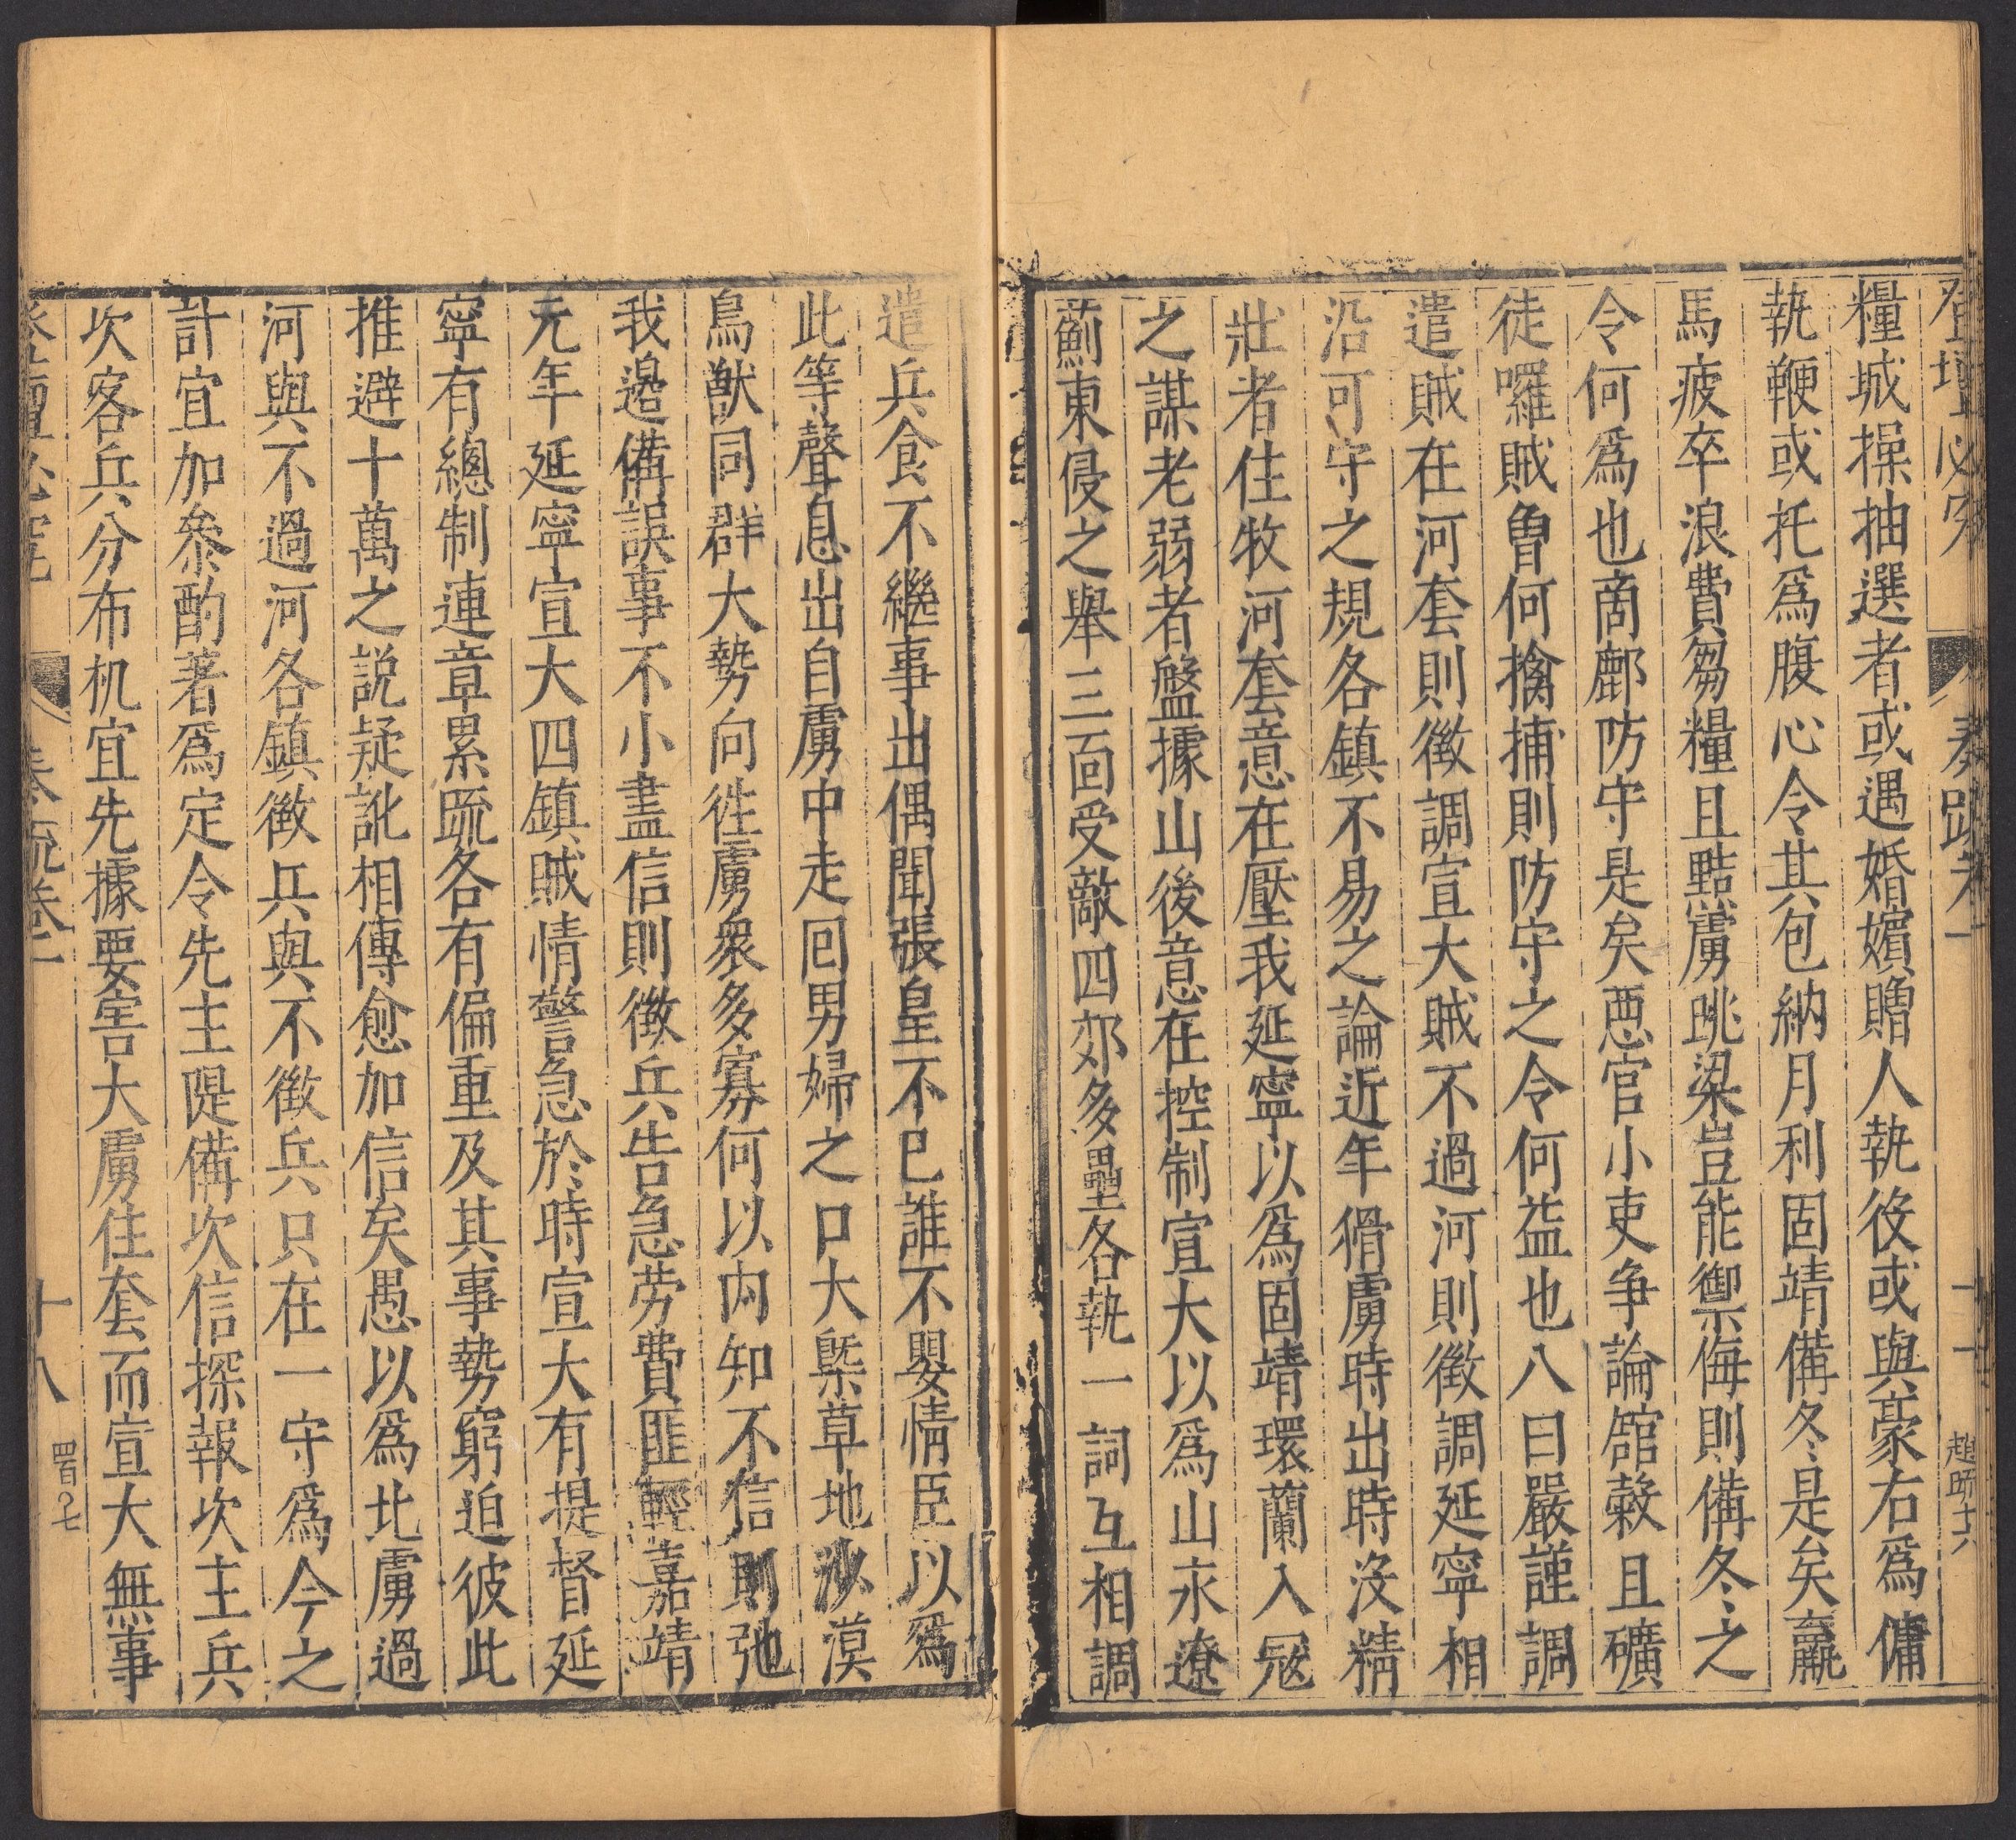 登壇必究 奏疏卷一 趙師十六
糧城操抽選者或遇婚嬪贈人執役或與豪右爲傭
執鞭或托爲腹心令其包納月利固靖備冬是矣羸
馬疲卒浪費芻糧且黠虜跳梁豈能禦侮則備冬之
令何爲也商鄜防守是矣悪官小吏争論舘穀且礦
徒囉賊曾何擒捕則防守之令何益也八曰嚴謹調
遣賊在河套則徴調宣大賊不過河則徴調延寧相
沿可守之規各鎮不易之論近年猾虜時出時没精
壯者住牧河套意在壓我延寧以爲固靖環蘭入寇
之謀老弱者盤據山後意在控制宣大以爲山永遼
薊東侵之舉三面受敵四郊多壘各執一詞互相調
遣兵食不繼事出偶聞張皇不已誰不嬰情臣以爲
此等聲息出自虜中走回男婦之口大槩草地沙漠
鳥獣同群大勢向徃虜衆多寡何以内知不信則弛
我邉備誤事不小盡信則徴兵告急劳費匪輕嘉靖
元年延寧宣大四鎮賊情警急於時宣大有提督延
寧有總制連章累疏各有偏重及其事勢窮迫彼此
推避十萬之説疑訛相傳愈加信矣愚以爲北虜過
河與不過河各鎮徴兵與不徴兵只在一守爲今之
計宜加叅酌著爲定令先主隄備次信探報次主兵
次客兵分布机宜先據要害大虜住套而宣大無事
登壇必究 奏疏卷一 十八